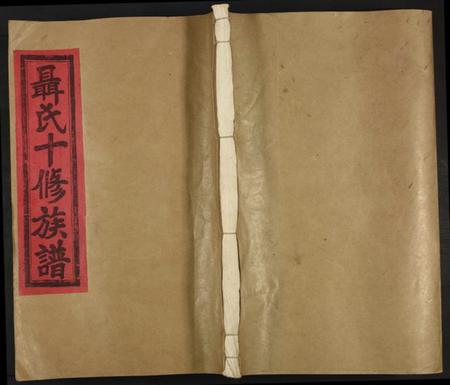 聶氏十修族譜